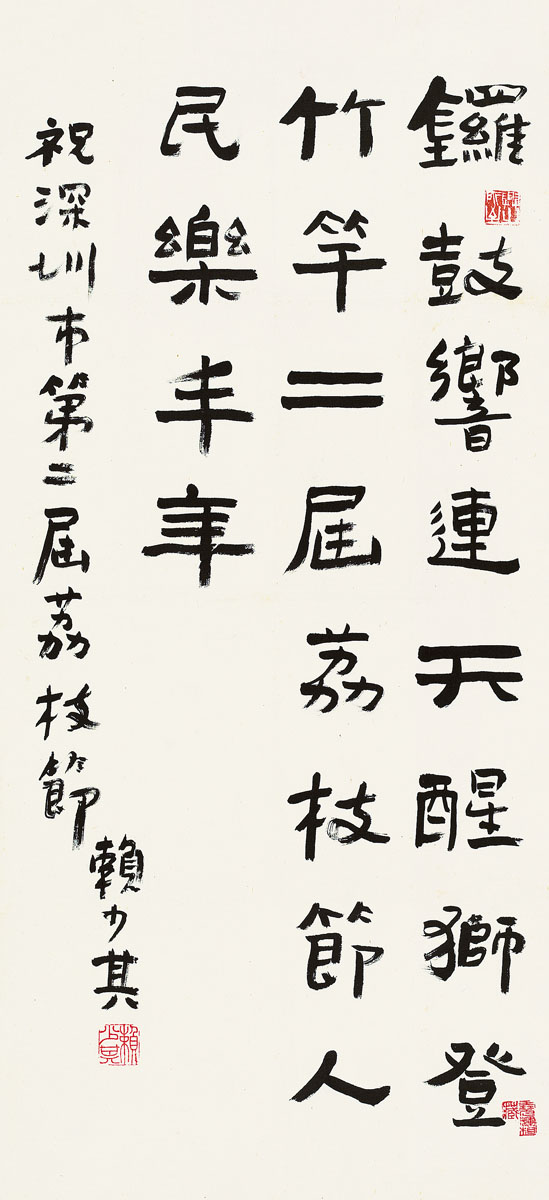 鑼鼓響連天醒獅登
竹竿二屆荔枝節人
民樂丰年
祝深圳市第二屆荔枝節
賴少其
賴少其